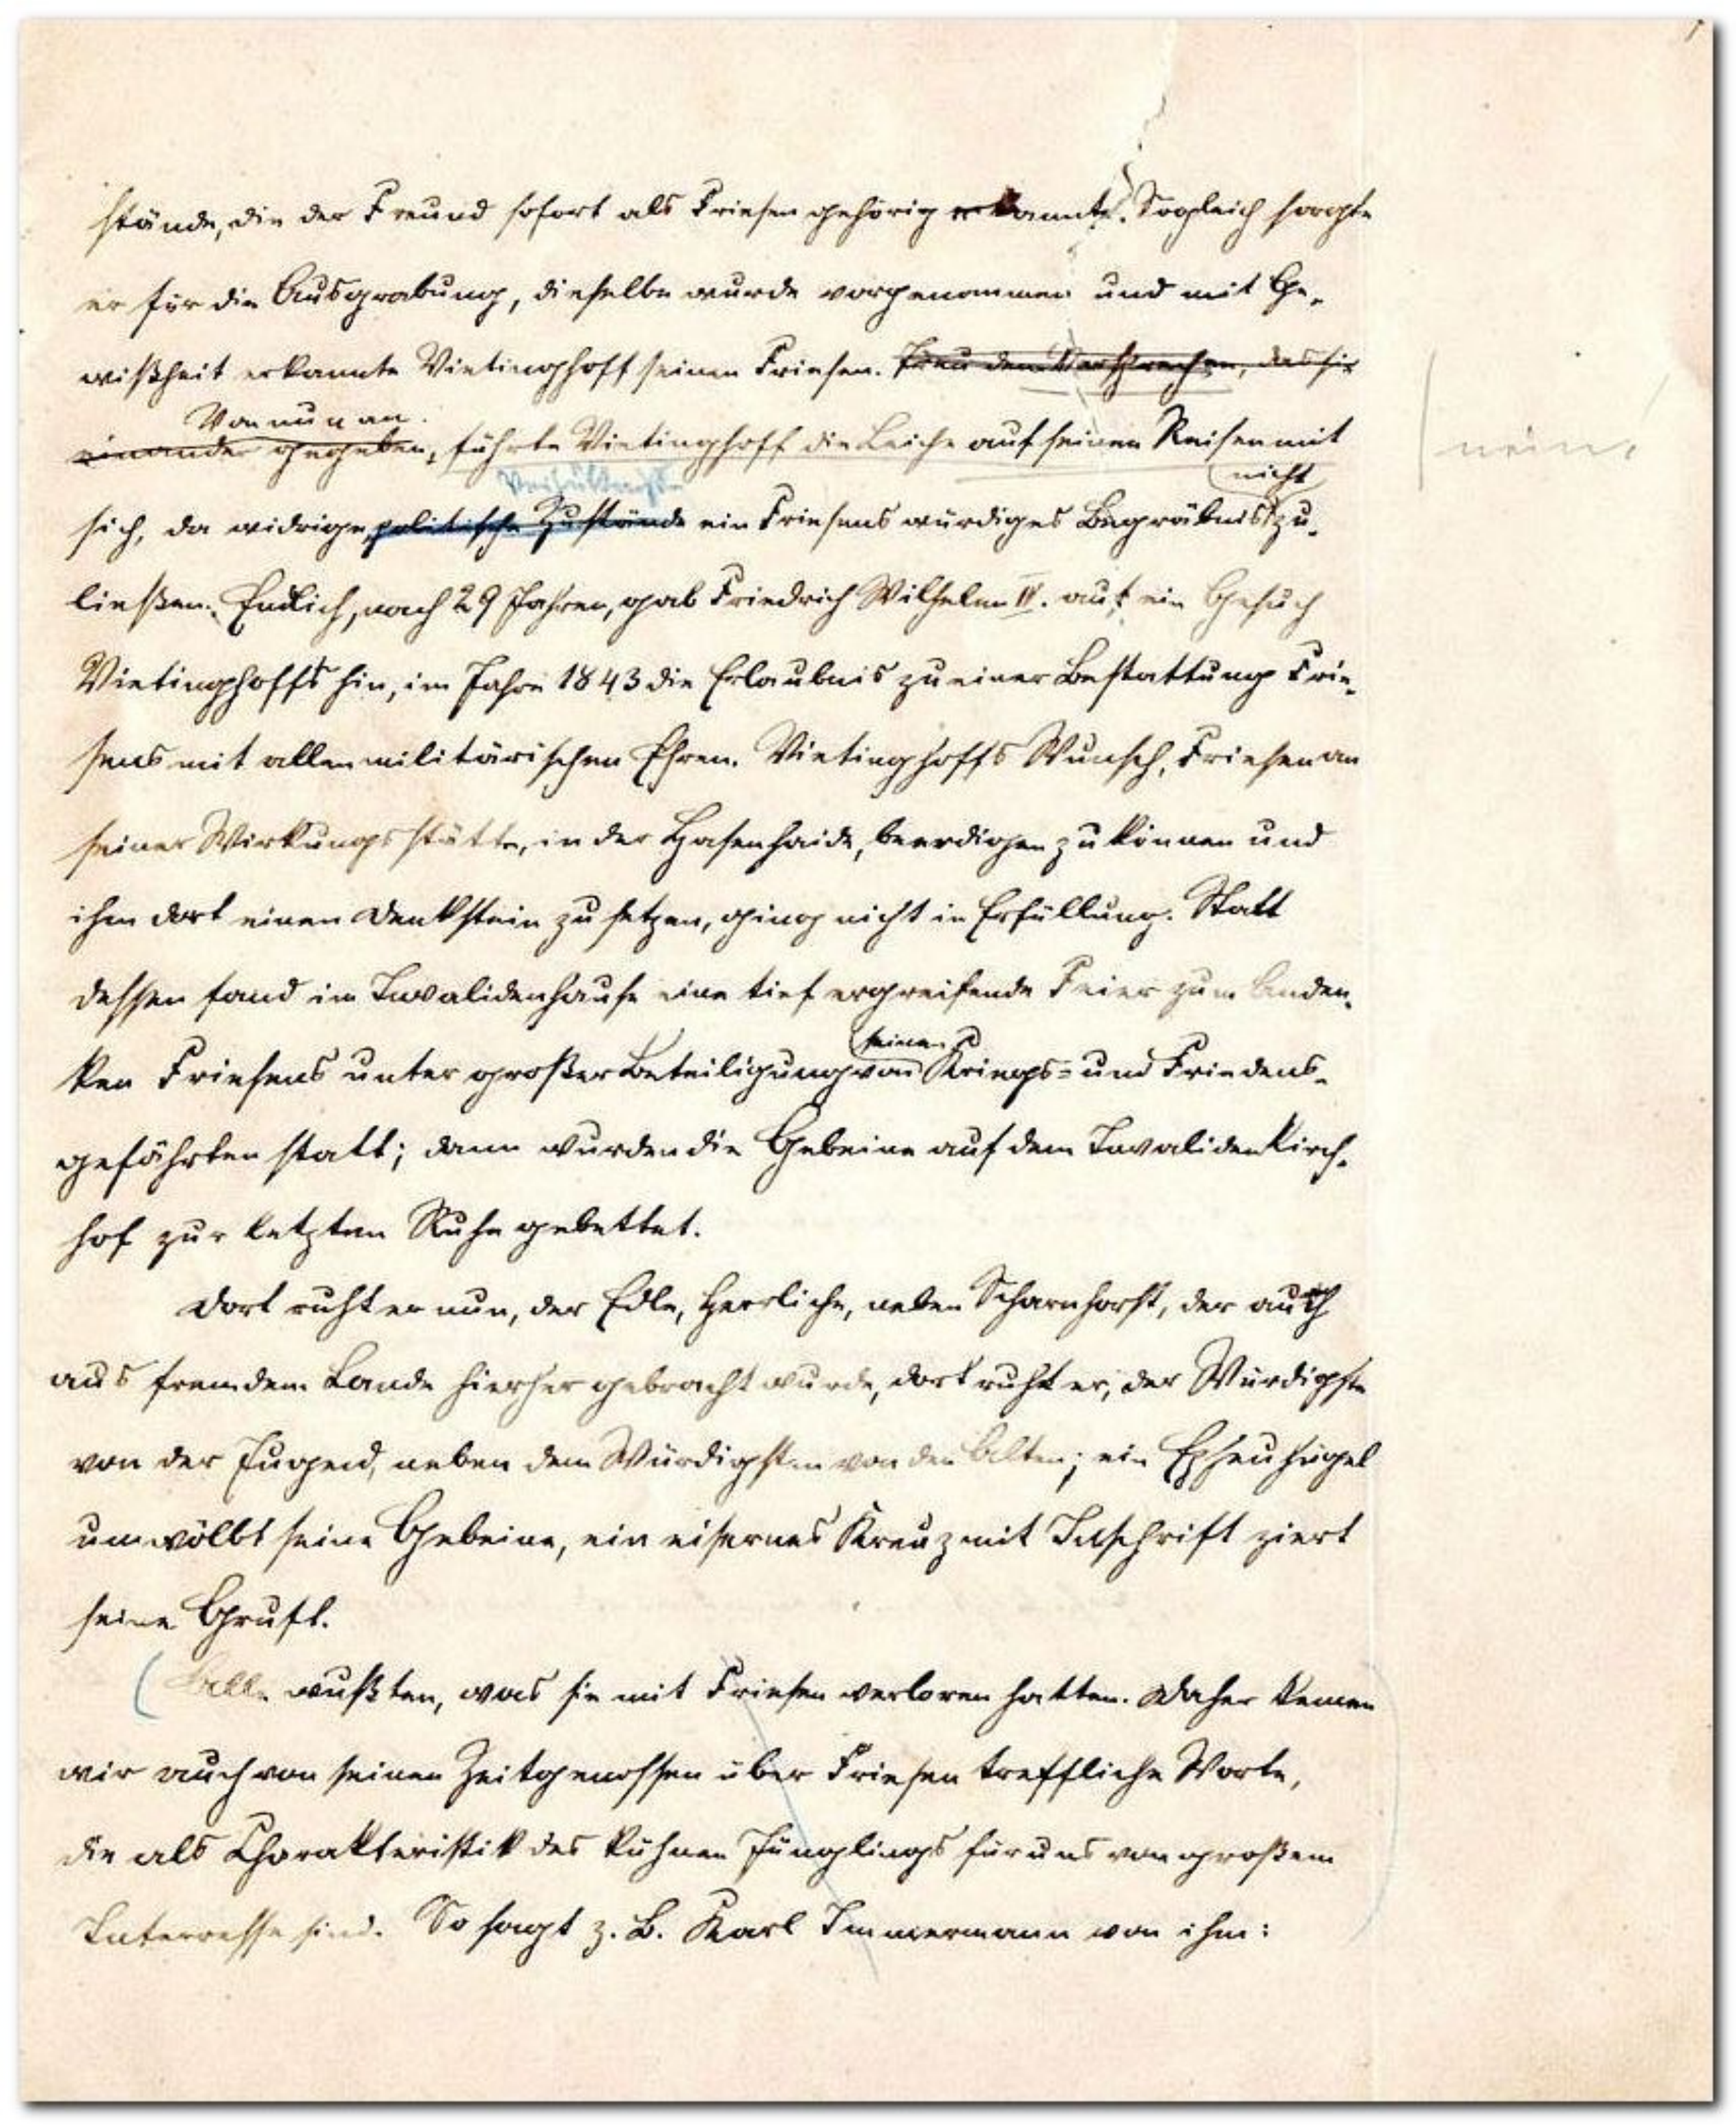 stände, die der Freund sofort als Friesen gehörig erkannte. Sogleich sorgte
er für die Ausgrabung, dieselbe wurde vorgenommen und mit Ge-
wißheit erkannte Vietinghoff seinen Friesen. Treu dem Versprechen, das sie
Von nun an
einander gegeben, führte Vietinghoff die Leiche auf seinen Reisen mit
nein.
Verhältnisse
nicht
sich, da widrige politische Zustände ein Friesens würdiges Begräbnis zu-
ließen. Endlich, nach 29 Jahren, gab Friedrich Wilhelm IV. auf ein Gesuch
Vietinghoffs hin, im Jahre 1843 die Erlaubnis zu einer Bestattung Frie-
sens mit allen militärischen Ehren. Vietinghoffs Wunsch, Friesen an
seiner Wirkungsstätte, in der Hasenhaide, beerdigen zu können und
ihm dort einen Denkstein zu setzen, ging nicht in Erfüllung. Statt
dessen fand im Invalidenhause eine tief ergreifende Feier zum Anden-
seinen
ken Friesens unter großer Beteiligung von Kriegs- und Friedens-
gefährten statt; dann wurden die Gebeine auf dem Invalidenkirch-
hof zur letzten Ruhe gebettet.
Dort ruht er nun, der Edle, Herrliche, neben Scharnhorst, der auch
aus fremdem Lande hierher gebracht wurde, dort ruht er, der Würdigste
von der Jugend, neben dem Würdigsten von den Alten; ein Epheuhügel
umwölbt seine Gebeine, ein eisernes Kreuz mit Inschrift ziert
seine Gruft.
(Alle wußten, was sie mit Friesen verloren hatten. Daher kennen
wir auch von seinen Zeitgenossen über Friesen treffliche Worte,
die als Charakteristik des kühnen Jünglings für uns von großem
Interesse sind. So sagt z. B. Karl Immermann von ihm: